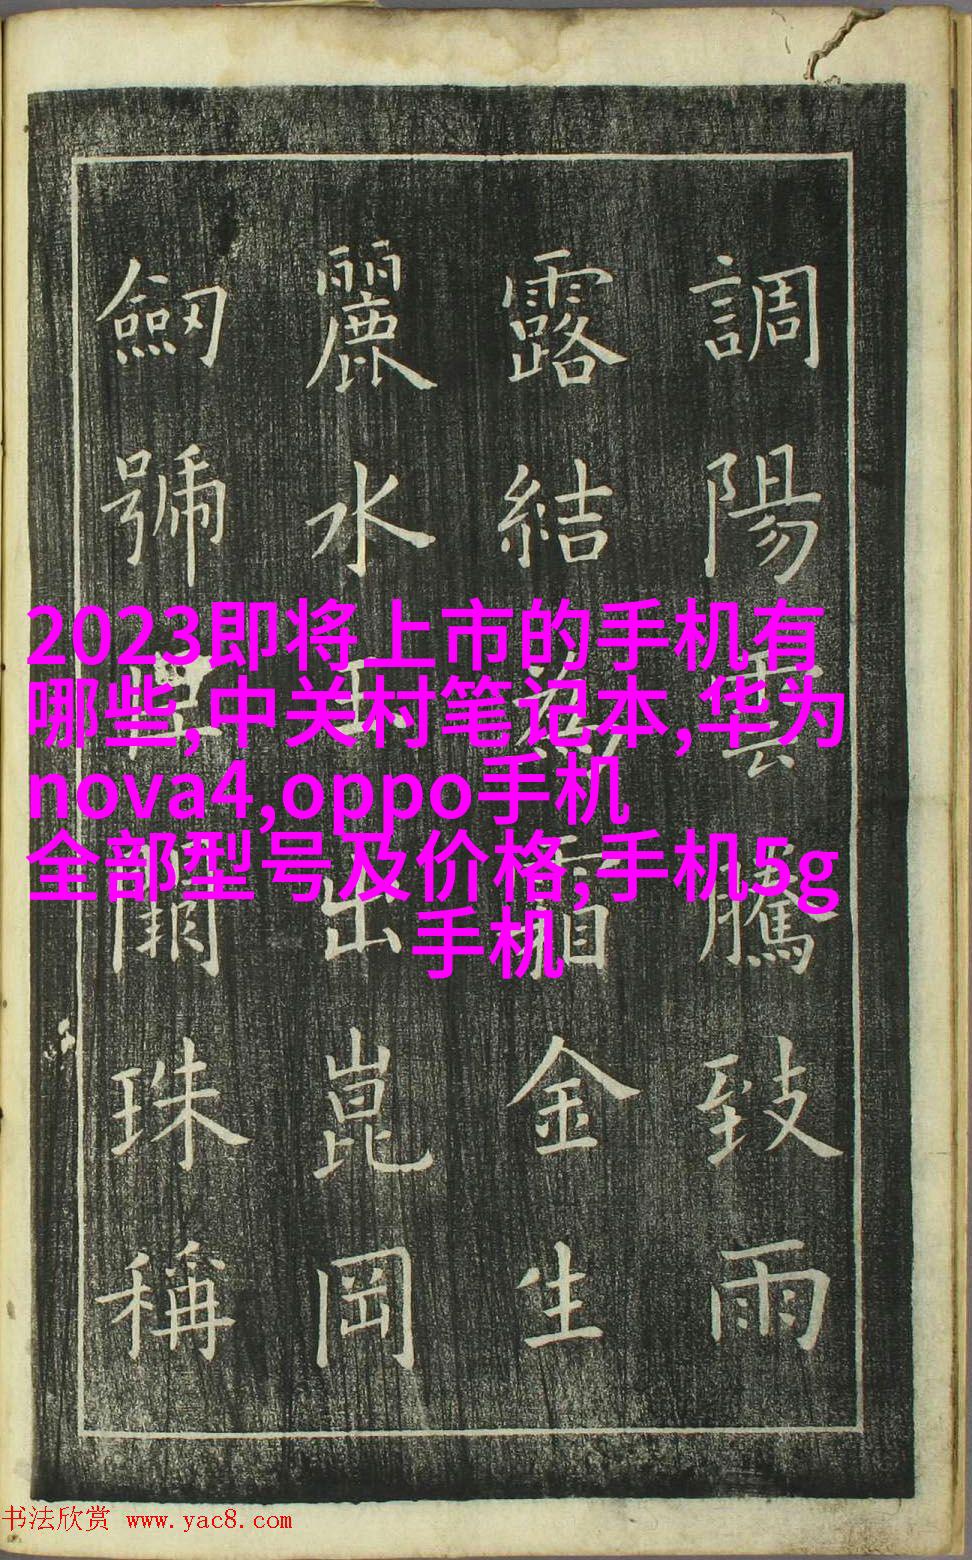 調陽雲騰致雨
露結霜金生
麗水出崑岡
劒號闕珠稱
2023即将上市的手机有
哪些,中关村笔记本,华为
nova4,oppo手机
全部型号及价格,手机5g
手机
书法欣赏 www.yac8.com